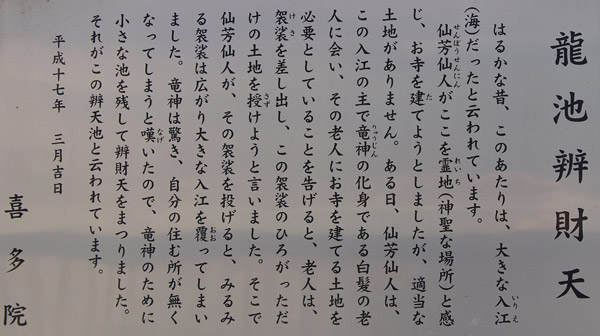 龍池辨財天
はるかな昔、このあたりは、大きな入江
(海)だったと云われています。
仙芳仙人がここを霊地(神聖な場所)と感
じ、お寺を建てようとしましたが、適当な
土地がありません。ある日、仙芳仙人は、
この入江の主で竜神の化身である白髪の老
人に会い、その老人にお寺を建てる土地を
必要としていることを告げると、老人は、
袈裟を差し出し、この袈裟のひろがっただ
けの土地を授けようと言いました。そこで
仙芳仙人が、その袈裟を投げると、みるみ
る袈裟は広がり大きな入江を覆ってしまい
ました。竜神は驚き、自分の住む所が無く
なってしまうと嘆いたので、竜神のために
小さな池を残して辨財天をまつりました。
それがこの辨天池と云われています。
平成十七年 三月吉日
喜多院